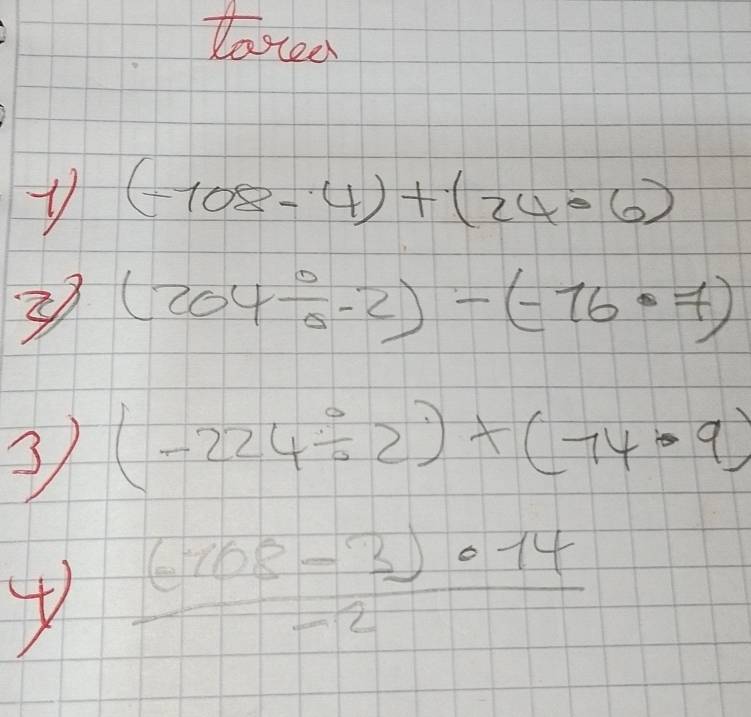 Tarea
1) (-108-4)+(24•6)
2) (204÷-2)-(-16•7)
3) (-224÷2)+(14•9)
4) (-108-3)•14
-2